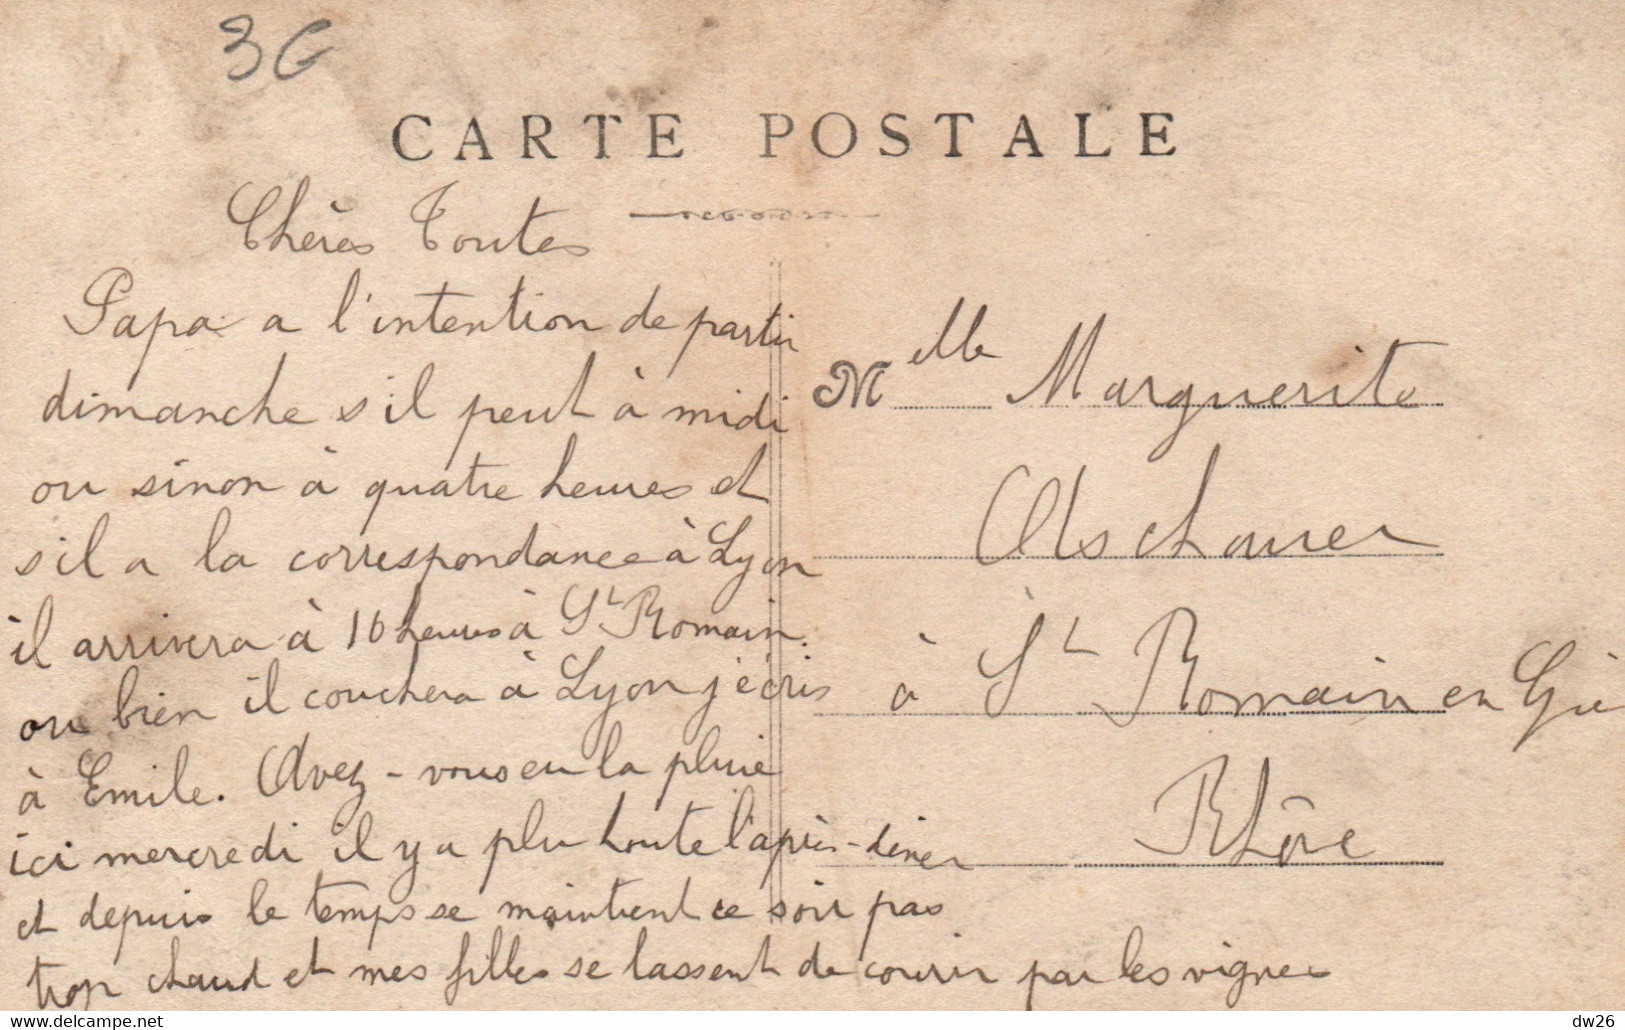 3G
CARTE POSTALE
Chères Toutes
Papa a l'intention de partir
dimanche s'il peut à midi
ou sinon à quatre heures et
s'il a la correspondance à Lyon
il arrivera à 10 heures à St Romain.
ou bien il couchera à Lyon j'écris
à Emile. Avez-vous eu la pluie
ici mercredi il y a plu toute l'après-diner
et depuis le temps se maintient ce soir pas
trop chaud et mes filles se lassent de courir par les vignes
Melle Marguerite
à St Romain en Gie
Rhône
http://www.delcampe.net
dw26